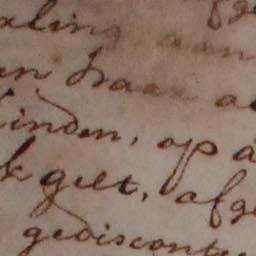 aling aan
an haar a
inden, op a
k gilt, afg
gediscont